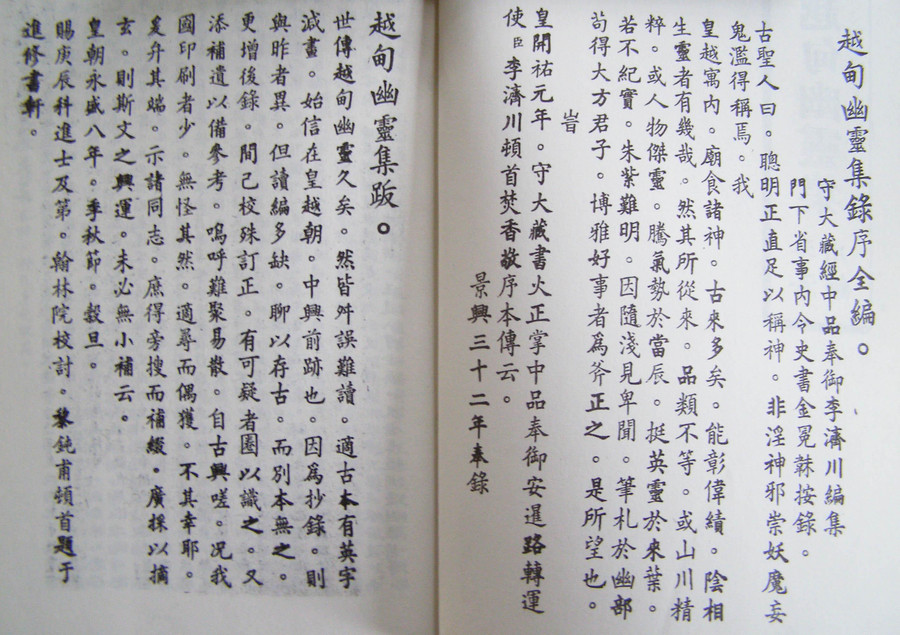 越甸幽靈集錄序全編。
守大藏經中品奉御李濟川編集
門下省事內令史書金冕䋲按錄。
古聖人曰。聰明正直足以稱神。非淫神邪崇妖魔妄
鬼濫得稱焉。我
皇越寓內。廟食諸神。古來多矣。能彰偉績。陰相
生靈者有幾哉。然其所從來。品類不等。或山川精
粹。或人物傑靈。騰氣勢於當辰。挺英靈於來葉。
若不紀實。朱紫難明。因隨淺見卑聞。筆札於幽部
苟得大方君子。博雅好事者為斧正之。是所望也。
旹
皇開祐元年。守大藏書火正掌中品奉御安暹路轉運
使臣李濟川頓首焚香敬序本傳云。
景興三十二年奉錄
越甸幽靈集跋。
世傳越甸幽靈久矣。然皆舛誤難讀。適古本有英字
減畫。始信在皇越朝。中興前跡也。因為抄錄。則
與昨者異。但讀編多缺。聊以存古。而別本無之。
更增後錄。間己校殊訂正。有可疑者圈以識之。又
添補遺以備參考。嗚呼難聚易散。自古興嗟。况我
國印刷者少。無怪其然。適尋而偶獲。不其幸耶。
爰弁其端。示諸同志。庶得旁搜而補綴。廣採以摘
玄。則斯文之興運。未必無小補云。
皇朝永盛八年。季秋節。穀旦。
賜庚辰科進士及第。翰林院校討。黎鈍甫頓首題于
進修書軒。